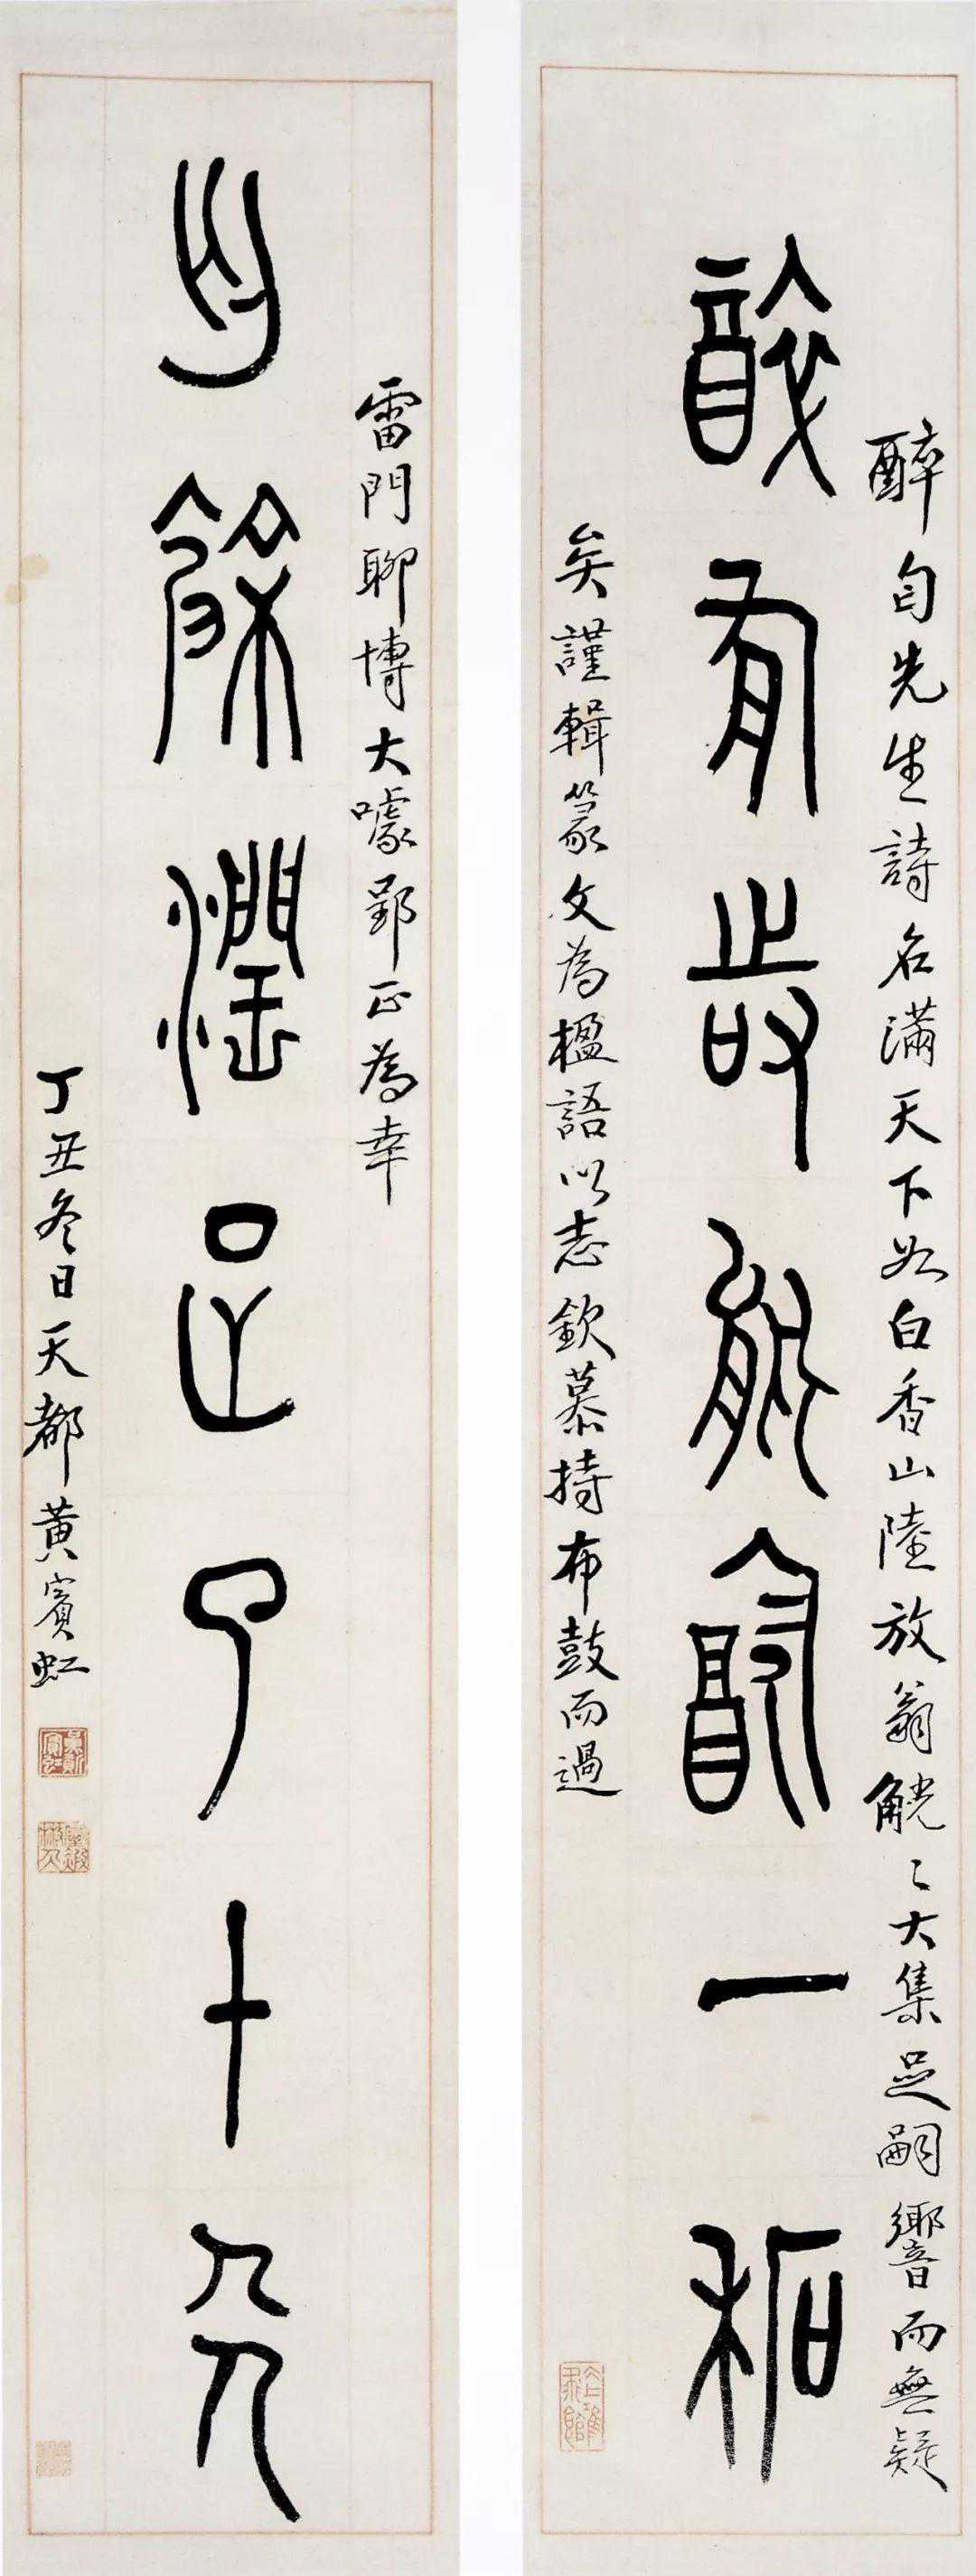 醉匀先生詩名滿天下如白香山陸放翁觥〻大集足嗣響而無疑
有故能一䄷
矣謹輯篆文為楹語以志欽慕持布鼓而過
雷門聊博大噱郢正為幸
餘潤足了十
丁丑冬日天都黃賓虹